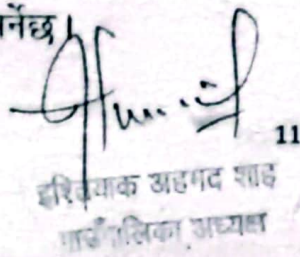 र्नेछ।
11
इश्तियाक अहमद शाह
गाउँपालिका अध्यक्ष